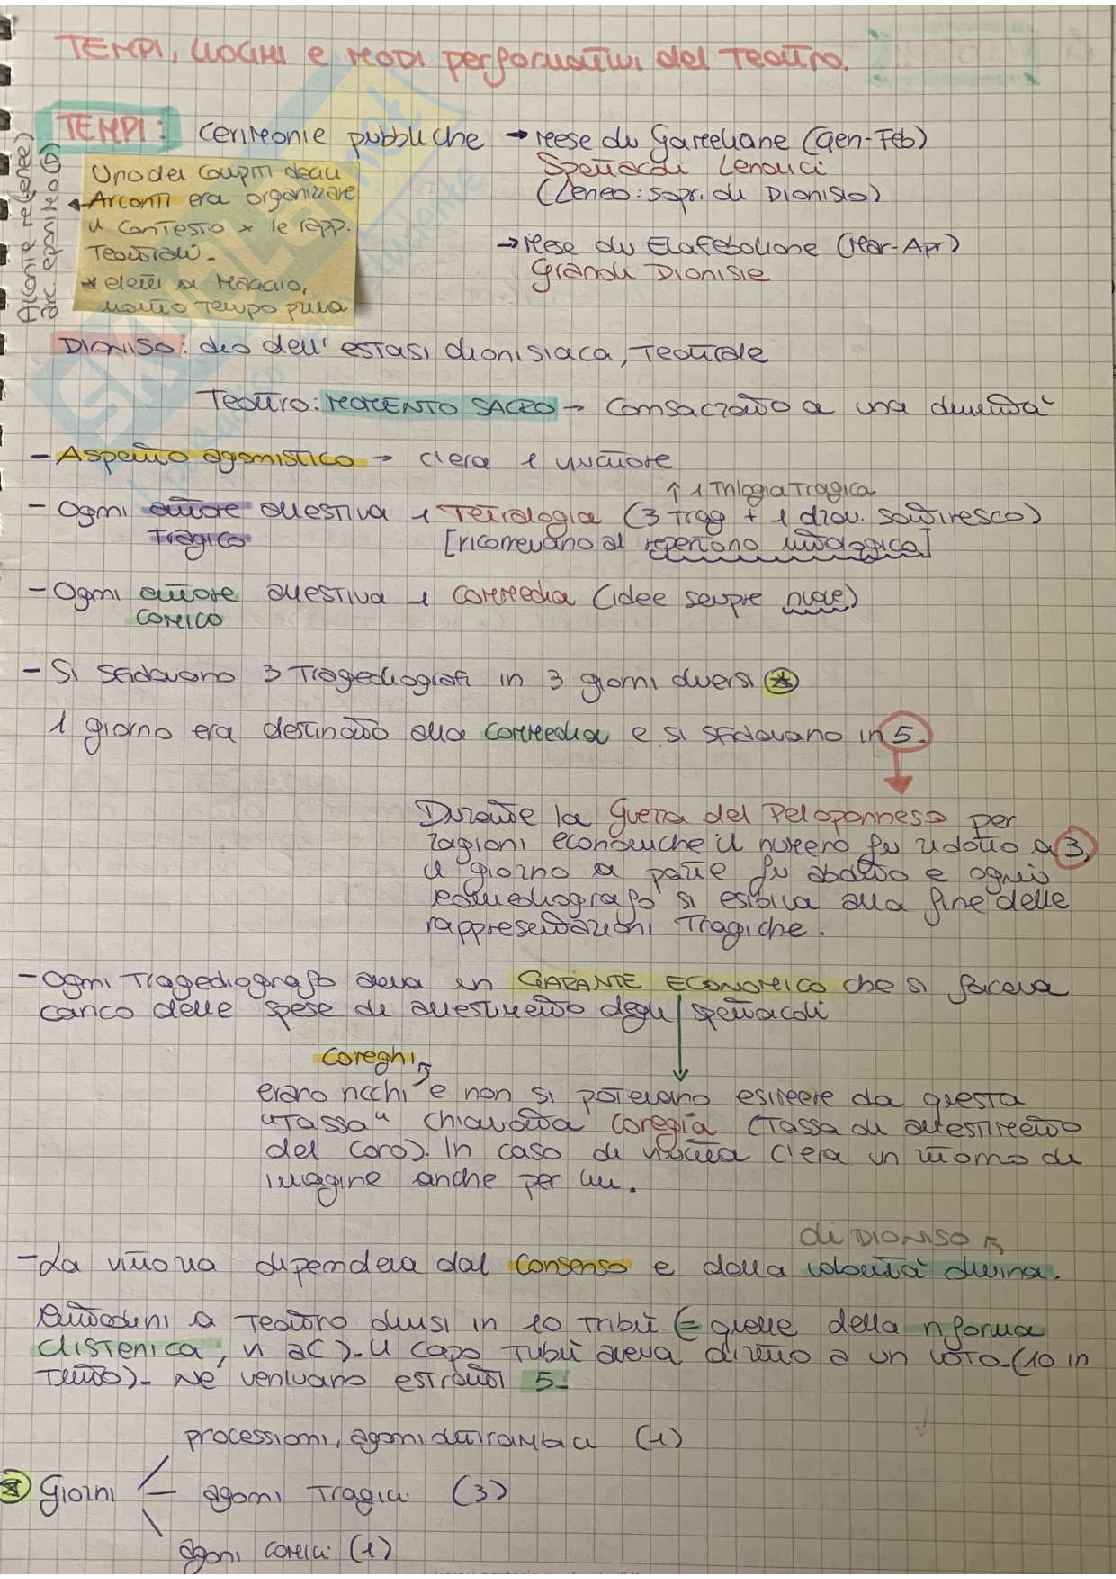 TEMPI, LUOGHI e MODI performativi del Teatro.
TEMPI: cerimonie pubbliche → Mese di Gameliane (Gen-Feb)
Spettacoli Lenaici
(Leneo: sopr. di Dionisio)
→ Mese di Elafebolione (Mar-Apr)
Grandi Dionisie
Uno dei compiti degli
Arconti era organizzare
il contesto x le rapp.
Teatrali.
* eletti a Maggio,
molto tempo prima
arc. eponimo
DIONISO: dio dell'estasi dionisiaca, Teatrale
Teatro: MOMENTO SACRO → Consacrato a una divinità
- Aspetto agonistico → c'era 1 vincitore
↑ 1 Trilogia Tragica
- Ogni autore allestiva 1 Tetralogia (3 Trag + 1 dram. satiresco)
Tragico [ricorrevano al repertorio mitologico]
- Ogni autore allestiva 1 commedia (idee sempre nuove)
comico
- Si sfidavano 3 Tragediografi in 3 giorni diversi *
1 giorno era destinato alla commedia e si sfidavano in 5.
Durante la Guerra del Peloponneso per
ragioni economiche il numero fu ridotto a 3,
il giorno a parte fu abolito e ogni
commediografo si esibiva alla fine delle
rappresentazioni Tragiche.
- Ogni Tragediografo aveva un GARANTE ECONOMICO che si faceva
carico delle spese di allestimento degli spettacoli
coreghi
erano ricchi e non si potevano esimere da questa
"Tassa" chiamata coregia (Tassa di allestimento
del coro). In caso di vittoria c'era un ritorno di
immagine anche per lui.
di DIONISO
- La vittoria dipendeva dal consenso e dalla volontà divina.
Cittadini a Teatro divisi in 10 Tribù (= quelle della riforma
clistenica, VI aC). Il capo Tribù aveva diritto a un voto (10 in
Tutto). Ne venivano estratti 5.
processioni, agoni ditirambici (1)
* Giorni — agoni Tragici (3)
agoni comici (1)